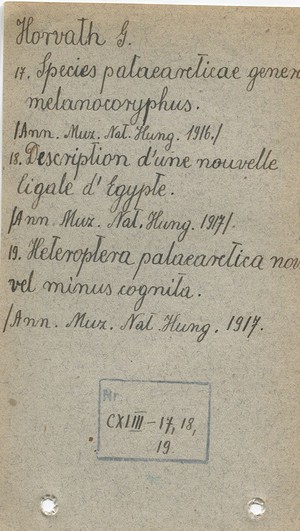 Horvath G.
17. Species palaearcticae gener
melanocoryphus.
/Ann. Muz. Nat. Hung. 1916./
18. Description d'une nouvelle
Cigale d'Egypte.
/Ann. Muz. Nat. Hung. 1917/.
19. Heteroptera palaearctica nov
vel minus cognita.
/Ann. Muz. Nat Hung. 1917.
Nr.
CXLIII-17, 18,
19.